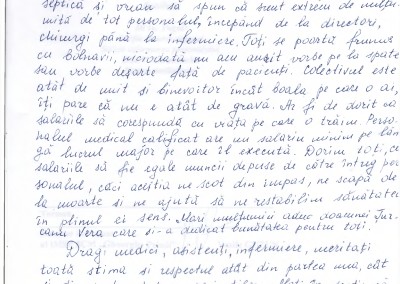 septică și vreau să spun că sunt extrem de mulțu-
mită de tot personalul, începând de la directori,
chirurgi până la infermiere. Toți se poartă frumos
cu bolnavii, niciodată nu am auzit vorbe pe la spate
sau vorbe deșarte față de pacienți. Colectivul este
atât de unit și binevoitor încât boala pe care o ai,
îți pare că nu e atât de gravă. Ar fi de dorit ca
salariile să corespundă cu viața pe care o trăim. Perso-
nalul medical calificat are un salariu minim pe lân-
gă lucrul major pe care îl execută. Dorim toți, ca
salariile să fie egale muncii depuse de către întreg per-
sonalul, căci aceștia ne scot din impas, ne scapă de
la moarte și ne ajută să ne restabilim sănătatea
în plinul ei sens. Mari mulțumiri aduc doamnei Țur-
canu Vera care și-a dedicat bunătatea pentru toți.
Dragi medici, asistenți, infermiere, meritați
toată stima și respectul atât din partea mea, cât